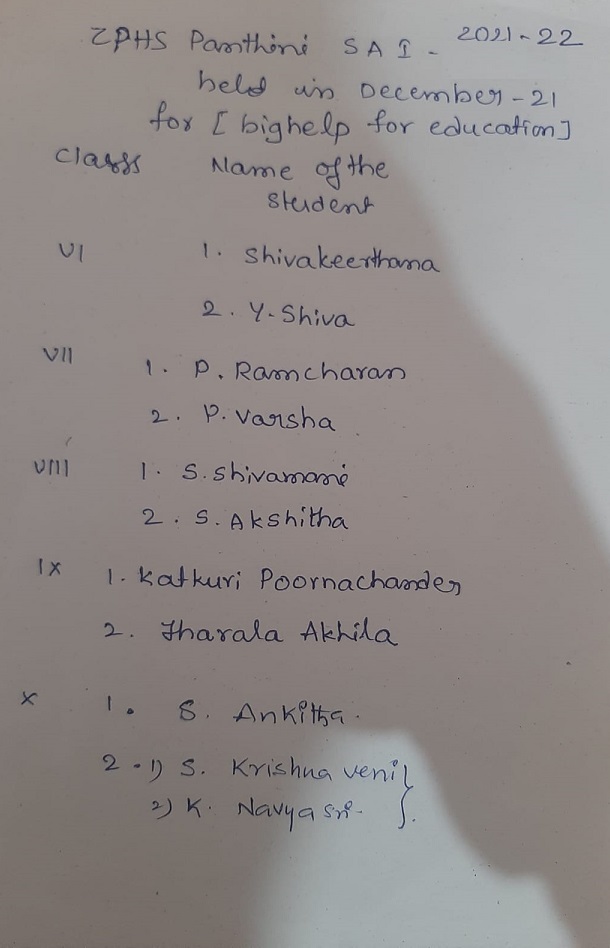 ZPHS Panthini SA I - 2021-22
held in December-21
for [bighelp for education]
Class Name of the
Student
VI 1. Shivakeerthana
2. Y. Shiva
VII 1. P. Ramcharan
2. P. Varsha
VIII 1. S. Shivamani
2. S. Akshitha
IX 1. Katkuri Poornachander
2. Jharala Akhila
X 1. S. Ankitha.
2. 1) S. Krishna veni }
2) K. Navya sri. }.